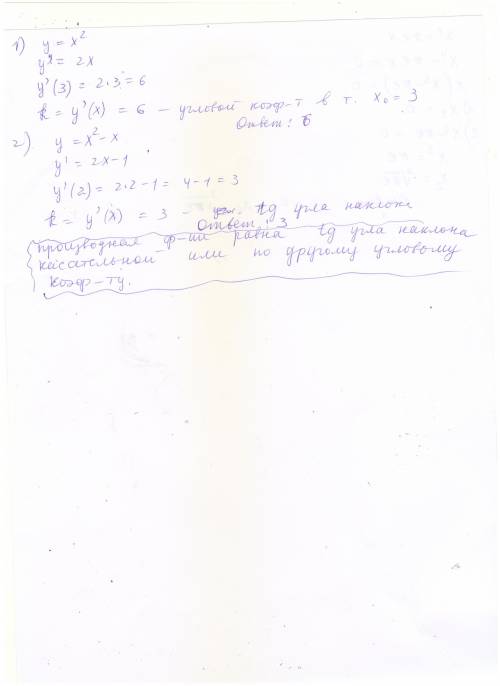 1) y = x²
y' = 2x
y'(3) = 2·3 = 6
k = y'(x) = 6 – угловой коэф-т в т. x₀ = 3
Ответ: 6
2) y = x² - x
y' = 2x - 1
y'(2) = 2·2 - 1 = 4 - 1 = 3
k = y'(x) = 3 – tg угла наклона
Ответ: 3
производная ф-ии равна tg угла наклона
касательной или по другому угловому
коэф-ту.